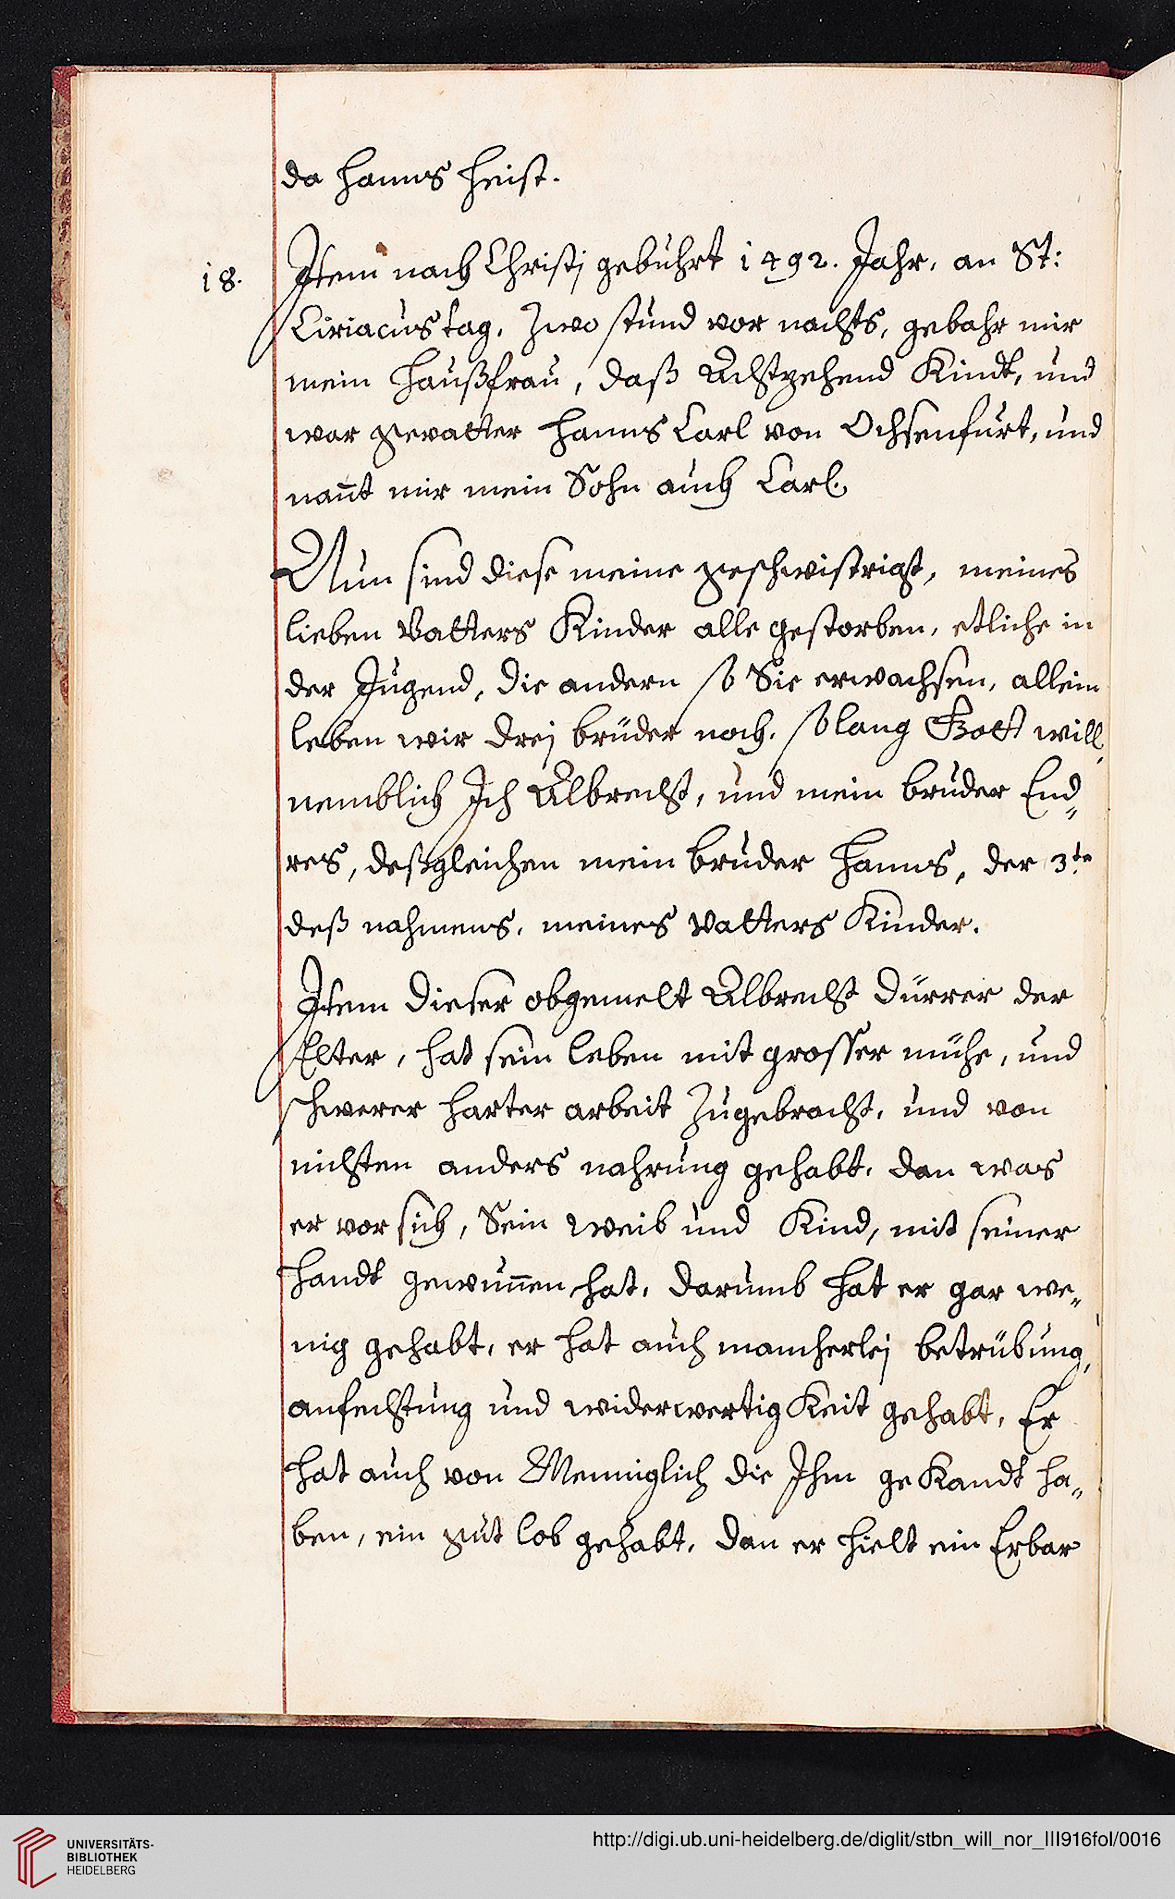 da Hanns heist.
18. Item nach Christj gebuhrt 1492. Jahr, an St:
Ciriacus tag, Zwo stund vor nachts, gebahr mir
mein Haußfrau, daß Achtzehend Kindt, und
war gevatter Hanns Carl von Ochsenfurt, und
nant mir mein Sohn auch Carl.
Nun sind diese meine geschwistrigt, meines
lieben Vatters Kinder alle gestorben, etliche in
der Jugend, die andern so Sie erwachsen, allein
leben wir drej brüder noch, so lang Gott will,
nemblich Ich Albrecht, und mein bruder End„
res, deßgleichen mein bruder Hanns, der 3te
deß nahmens, meines Vatters Kinder.
Item dieser obgemelt Albrecht Dürrer der
Elter, hat sein leben mit grosser mühe, und
schwerer harter arbeit Zugebracht, und von
nichten anders nahrung gehabt, dan was
er vor sich, Sein weib und Kind, mit seiner
Handt gewunnen hat, darumb hat er gar we„
nig gehabt, er hat auch mancherlej betrübung,
anfechtung und widerwertigKeit gehabt, Er
hat auch von Menniglich die Ihm geKandt ha„
ben, ein gut lob gehabt, dan er hielt ein Erbar
UNIVERSITÄTS-
BIBLIOTHEK
HEIDELBERG
http://digi.ub.uni-heidelberg.de/diglit/stbn_will_nor_III916fol/0016